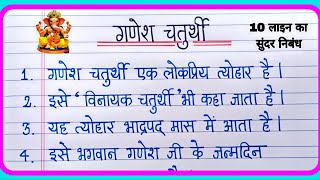 गणेश चतुर्थी
10 लाइन का
सुंदर निबंध
1. गणेश चतुर्थी एक लोकप्रिय त्योहार है।
2. इसे 'विनायक चतुर्थी' भी कहा जाता है।
3. यह त्योहार भाद्रपद मास में आता है।
4. इसे भगवान गणेश जी के जन्मदिन